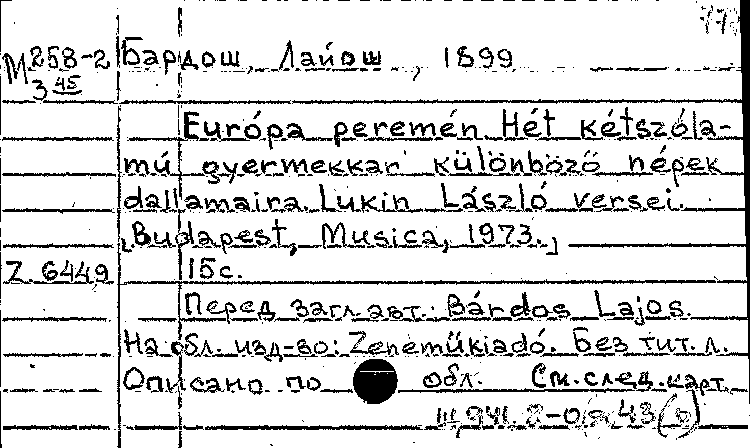 М 258-2 Бардош, Лайош, 1899
3 45
Európa peremén. Hét kétszóla-
mú gyermekkar különböző népek
dallamaira. Lukin László versei.
[Budapest, Musica, 1973.]
Z. 6449 15 с.
Перед загл. авт.: Bárdos Lajos.
На обл. изд-во: Zeneműkiadó. Без тит. л.
Описано по обл. См. след. карт.